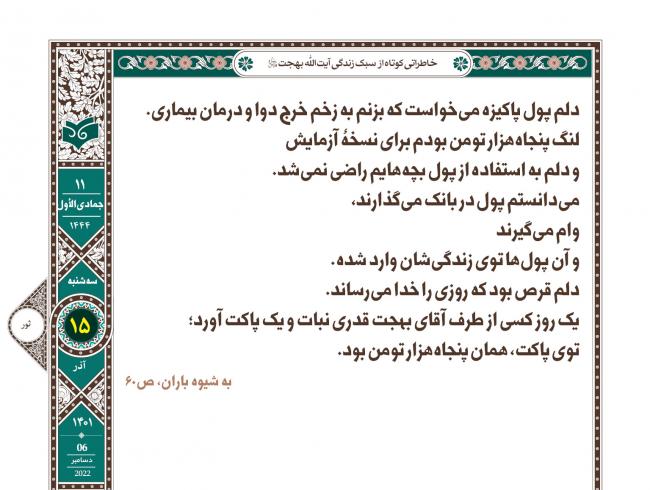 خاطراتی کوتاه از سبک زندگی آیت‌الله بهجت
دلم پول پاکیزه می‌خواست که بزنم به زخم خرج دوا و درمان بیماری.
لنگ پنجاه‌هزار تومن بودم برای نسخهٔ آزمایش
و دلم به استفاده از پول بچه‌هایم راضی نمی‌شد.
می‌دانستم پول در بانک می‌گذارند،
وام می‌گیرند
و آن پول‌ها توی زندگی‌شان وارد شده.
دلم قرص بود که روزی را خدا می‌رساند.
یک روز کسی از طرف آقای بهجت قدری نبات و یک پاکت آورد؛
توی پاکت، همان پنجاه‌هزار تومن بود.
به شیوه باران، ص۶۰
۱۱
جمادی‌الأول
۱۴۴۴
سه‌شنبه
۱۵
نور
آذر
۱۴۰۱
06
دسامبر
2022